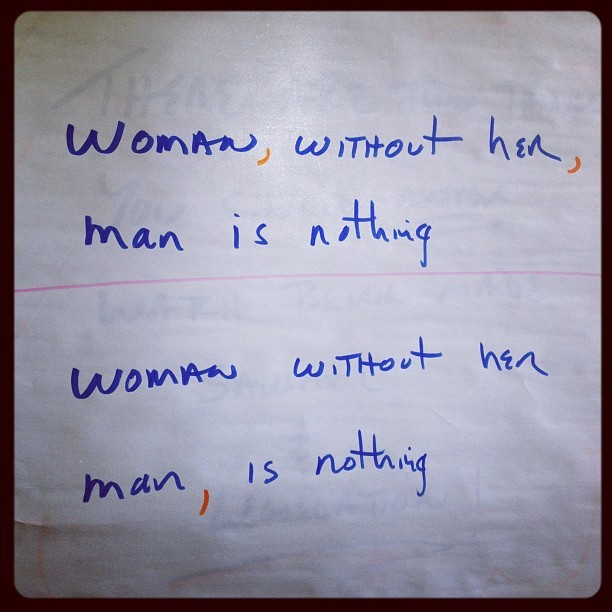 WOMAN, WITHOUT HER,
man is nothing
WOMAN WITHOUT HER
man, is nothing